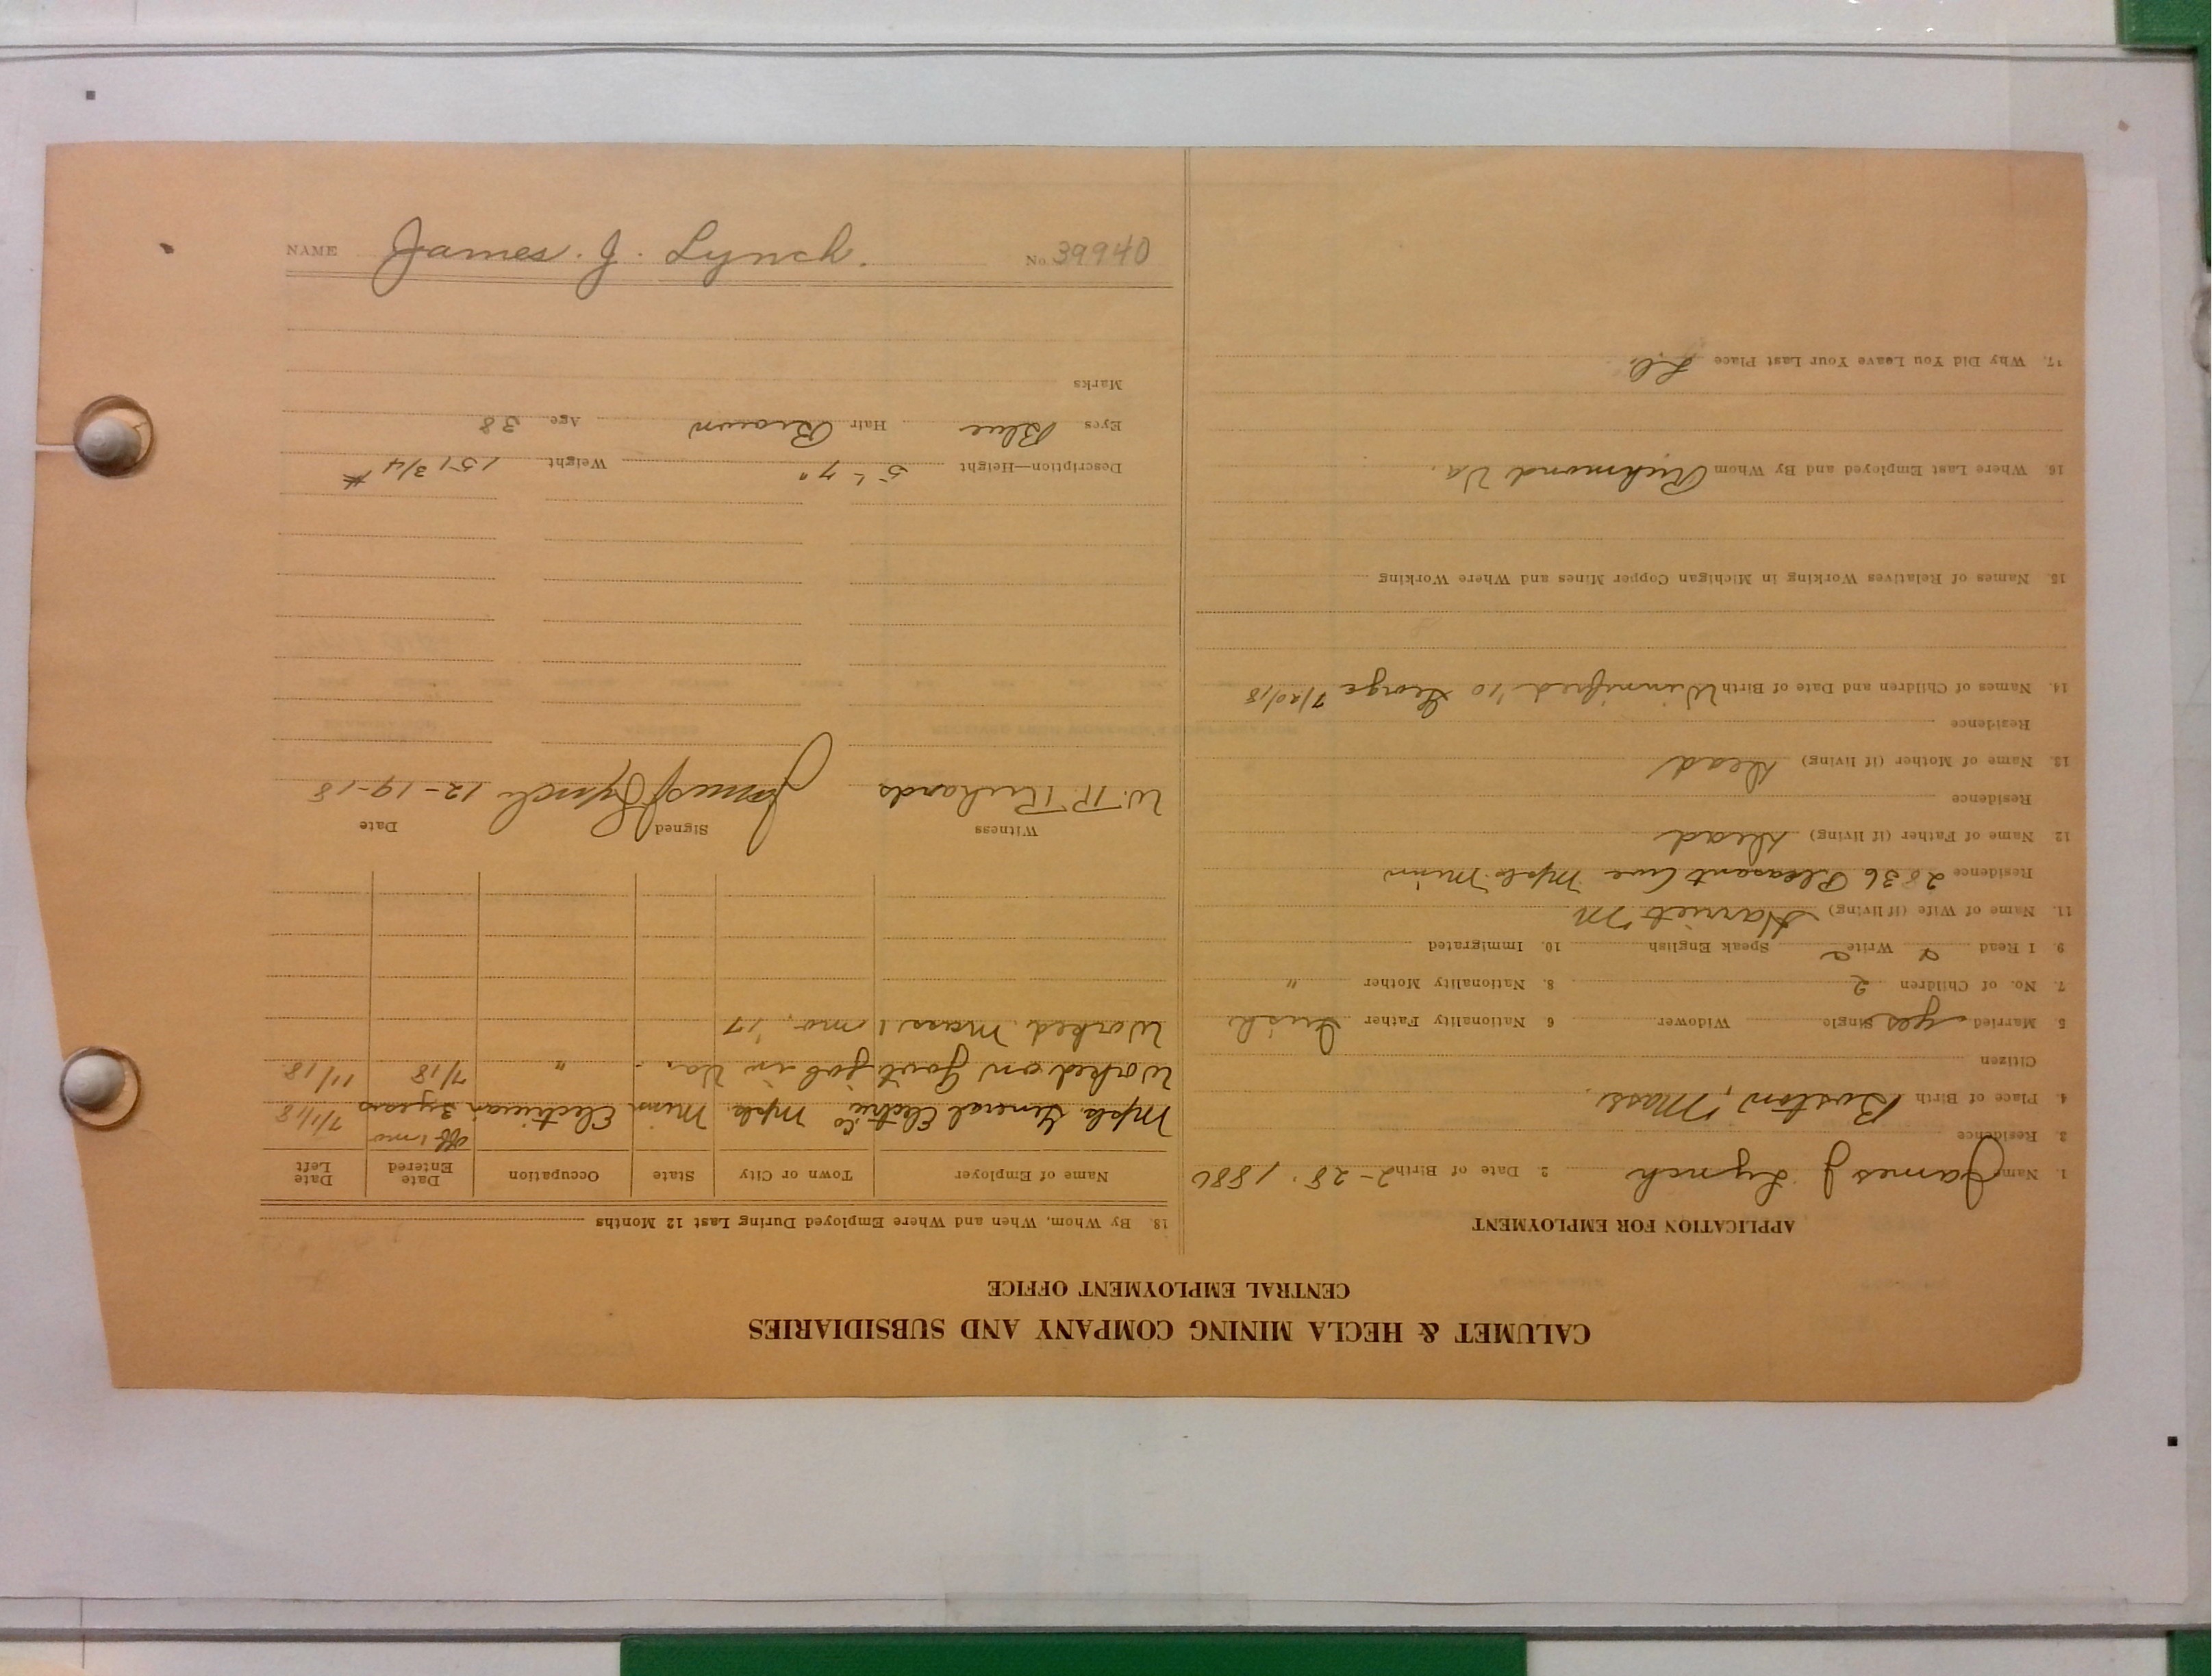 CALUMET & HECLA MINING COMPANY AND SUBSIDIARIES
CENTRAL EMPLOYMENT OFFICE
APPLICATION FOR EMPLOYMENT
1. Name James J Lynch 2. Date of Birth 2-28-1880
3. Residence
4. Place of Birth Boston, Mass.
Citizen
5 Married yes Single Widower 6 Nationality Father Irish
7. No. of Children 2 8. Nationality Mother "
9. I Read Write Speak English 10. Immigrated
11. Name of Wife (if living) Harriet M
Residence 2836 Pleasant Ave Mpls. Minn
12 Name of Father (if living) Dead
Residence
13. Name of Mother (if living) Dead
Residence
14. Names of Children and Date of Birth Winnifred '10 George 7/20/18
15. Names of Relatives Working in Michigan Copper Mines and Where Working
16. Where Last Employed and By Whom Richmond Va.
17. Why Did You Leave Your Last Place
18. By Whom, When and Where Employed During Last 12 Months
Name of Employer Town or City State Occupation Date Entered Date Left
off 1 mo
Mpls General Electric Co Mpls. Minn Electrician 3 years 7/1/18
Worked on Gov't job in Va. " 7/18 11/18
Worked Mass. 1 mo. '17
Witness Signed Date
W. R. Richards James J Lynch 12-19-18
Description—Height 5' 7" Weight 151 3/4 #
Eyes Blue Hair Brown Age 38
Marks
NAME James. J. Lynch. No. 39940